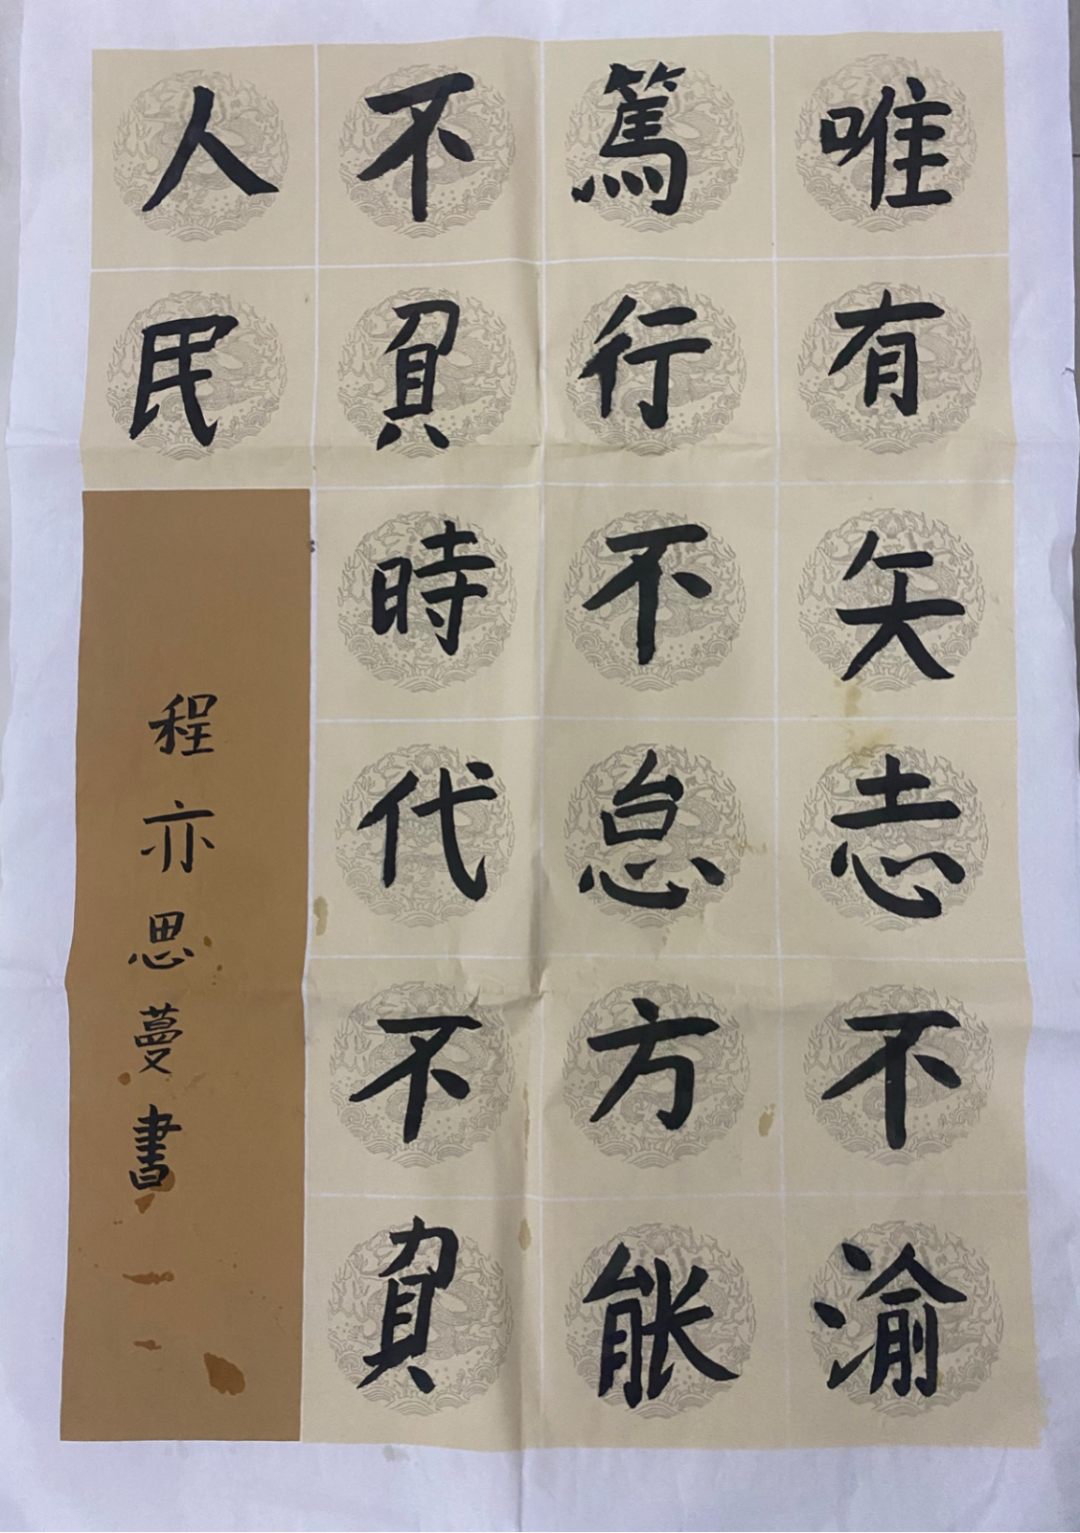 唯有矢志不渝
篤行不怠方能
不負時代不負
人民
程亦思蔓書